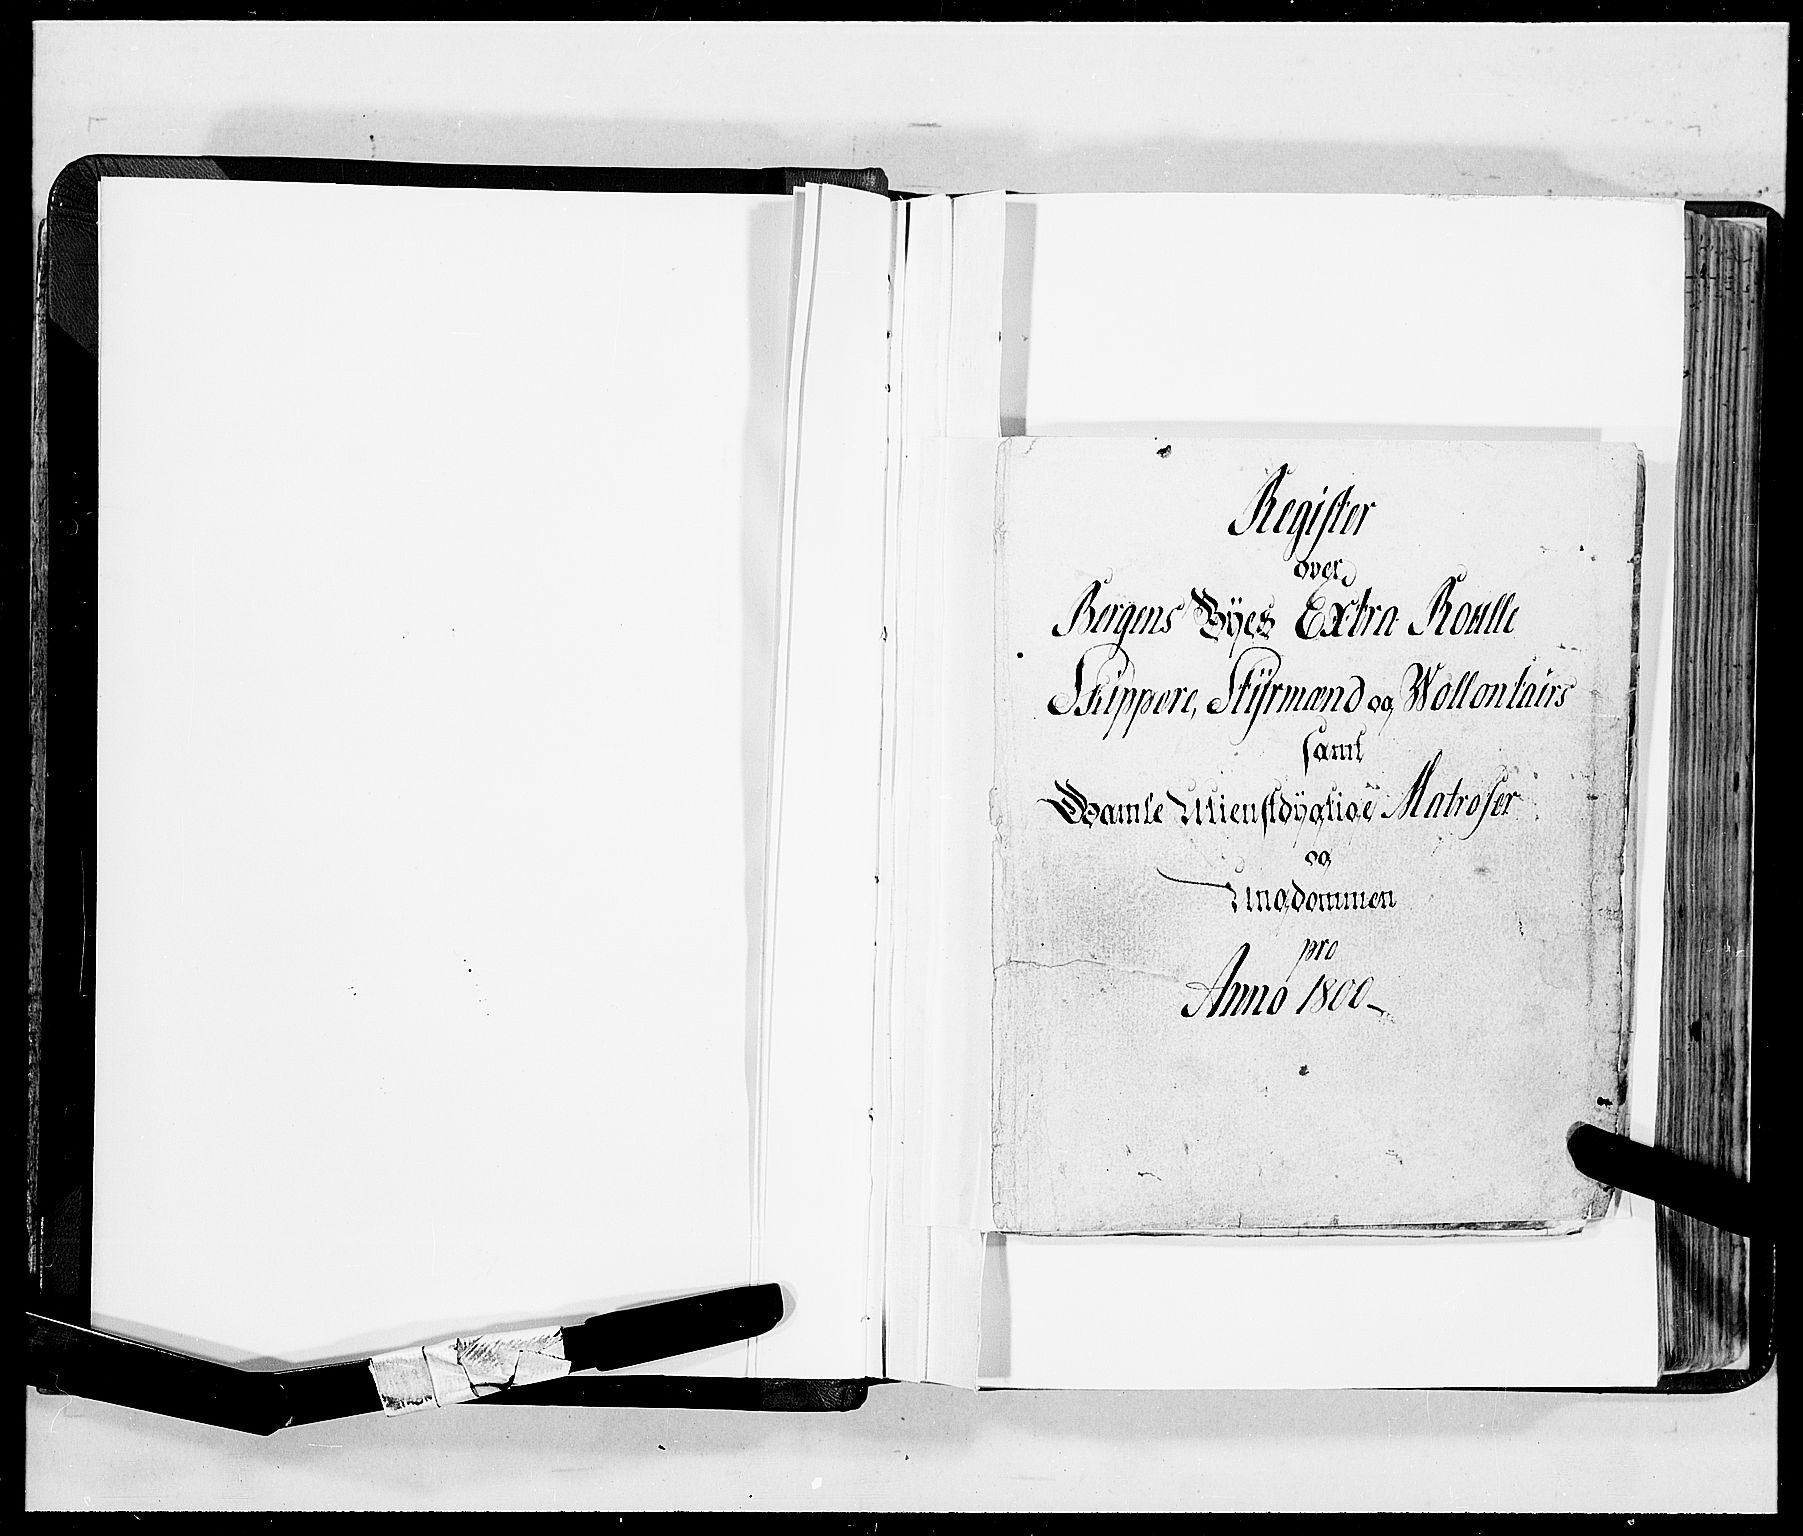 Register
over
Bergens Byes Extra Roulle
Skippere, Styrmænd og Wollontairs
samt
Gamle Utienstdygtige Matroser
og
Ungdommen
pro
Anno 1800